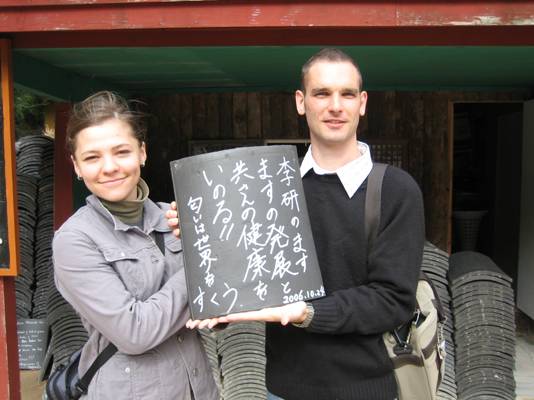 李研のます
ますの発展と
共さんの健康を
いのる!!
匂いは世界を
すくう.
2006.10.29